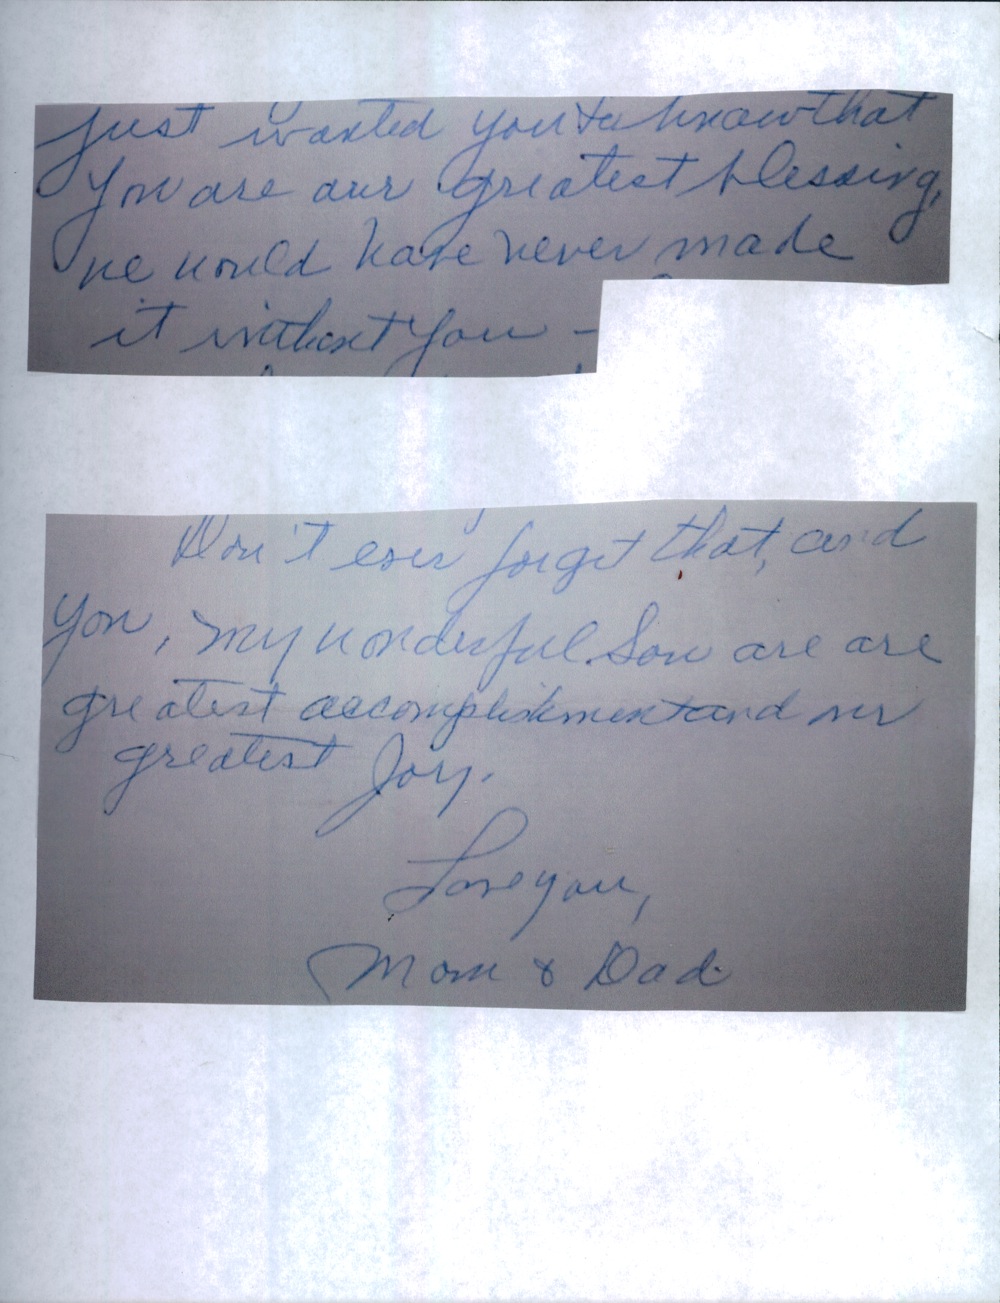 Just wanted you to know that
you are our greatest blessing,
we would have never made
it without you -
Don't ever forget that, and
you, my wonderful Son are are
greatest accomplishment and our
greatest Joy.
Love you,
Mom & Dad